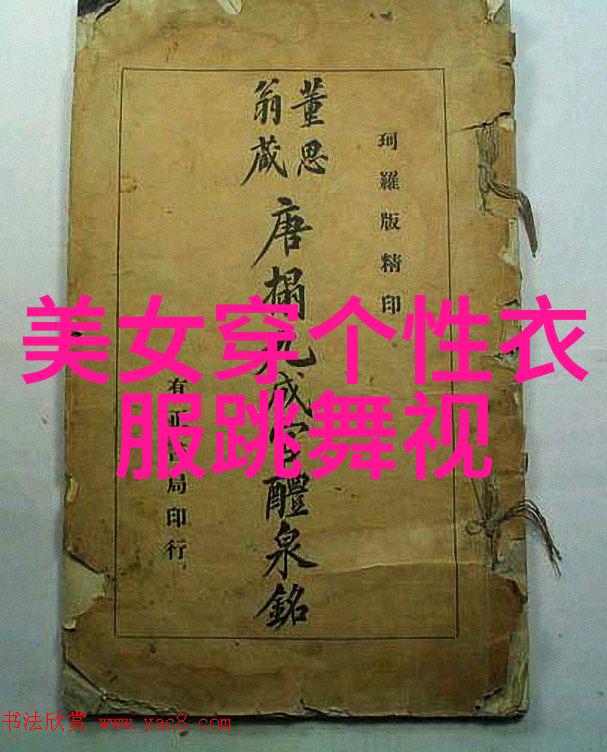 珂羅版精印
董思
翁藏
唐搨九成宮醴泉銘
有正局印行
美女穿个性衣
服跳舞视
书法欣赏 www.yac8.com